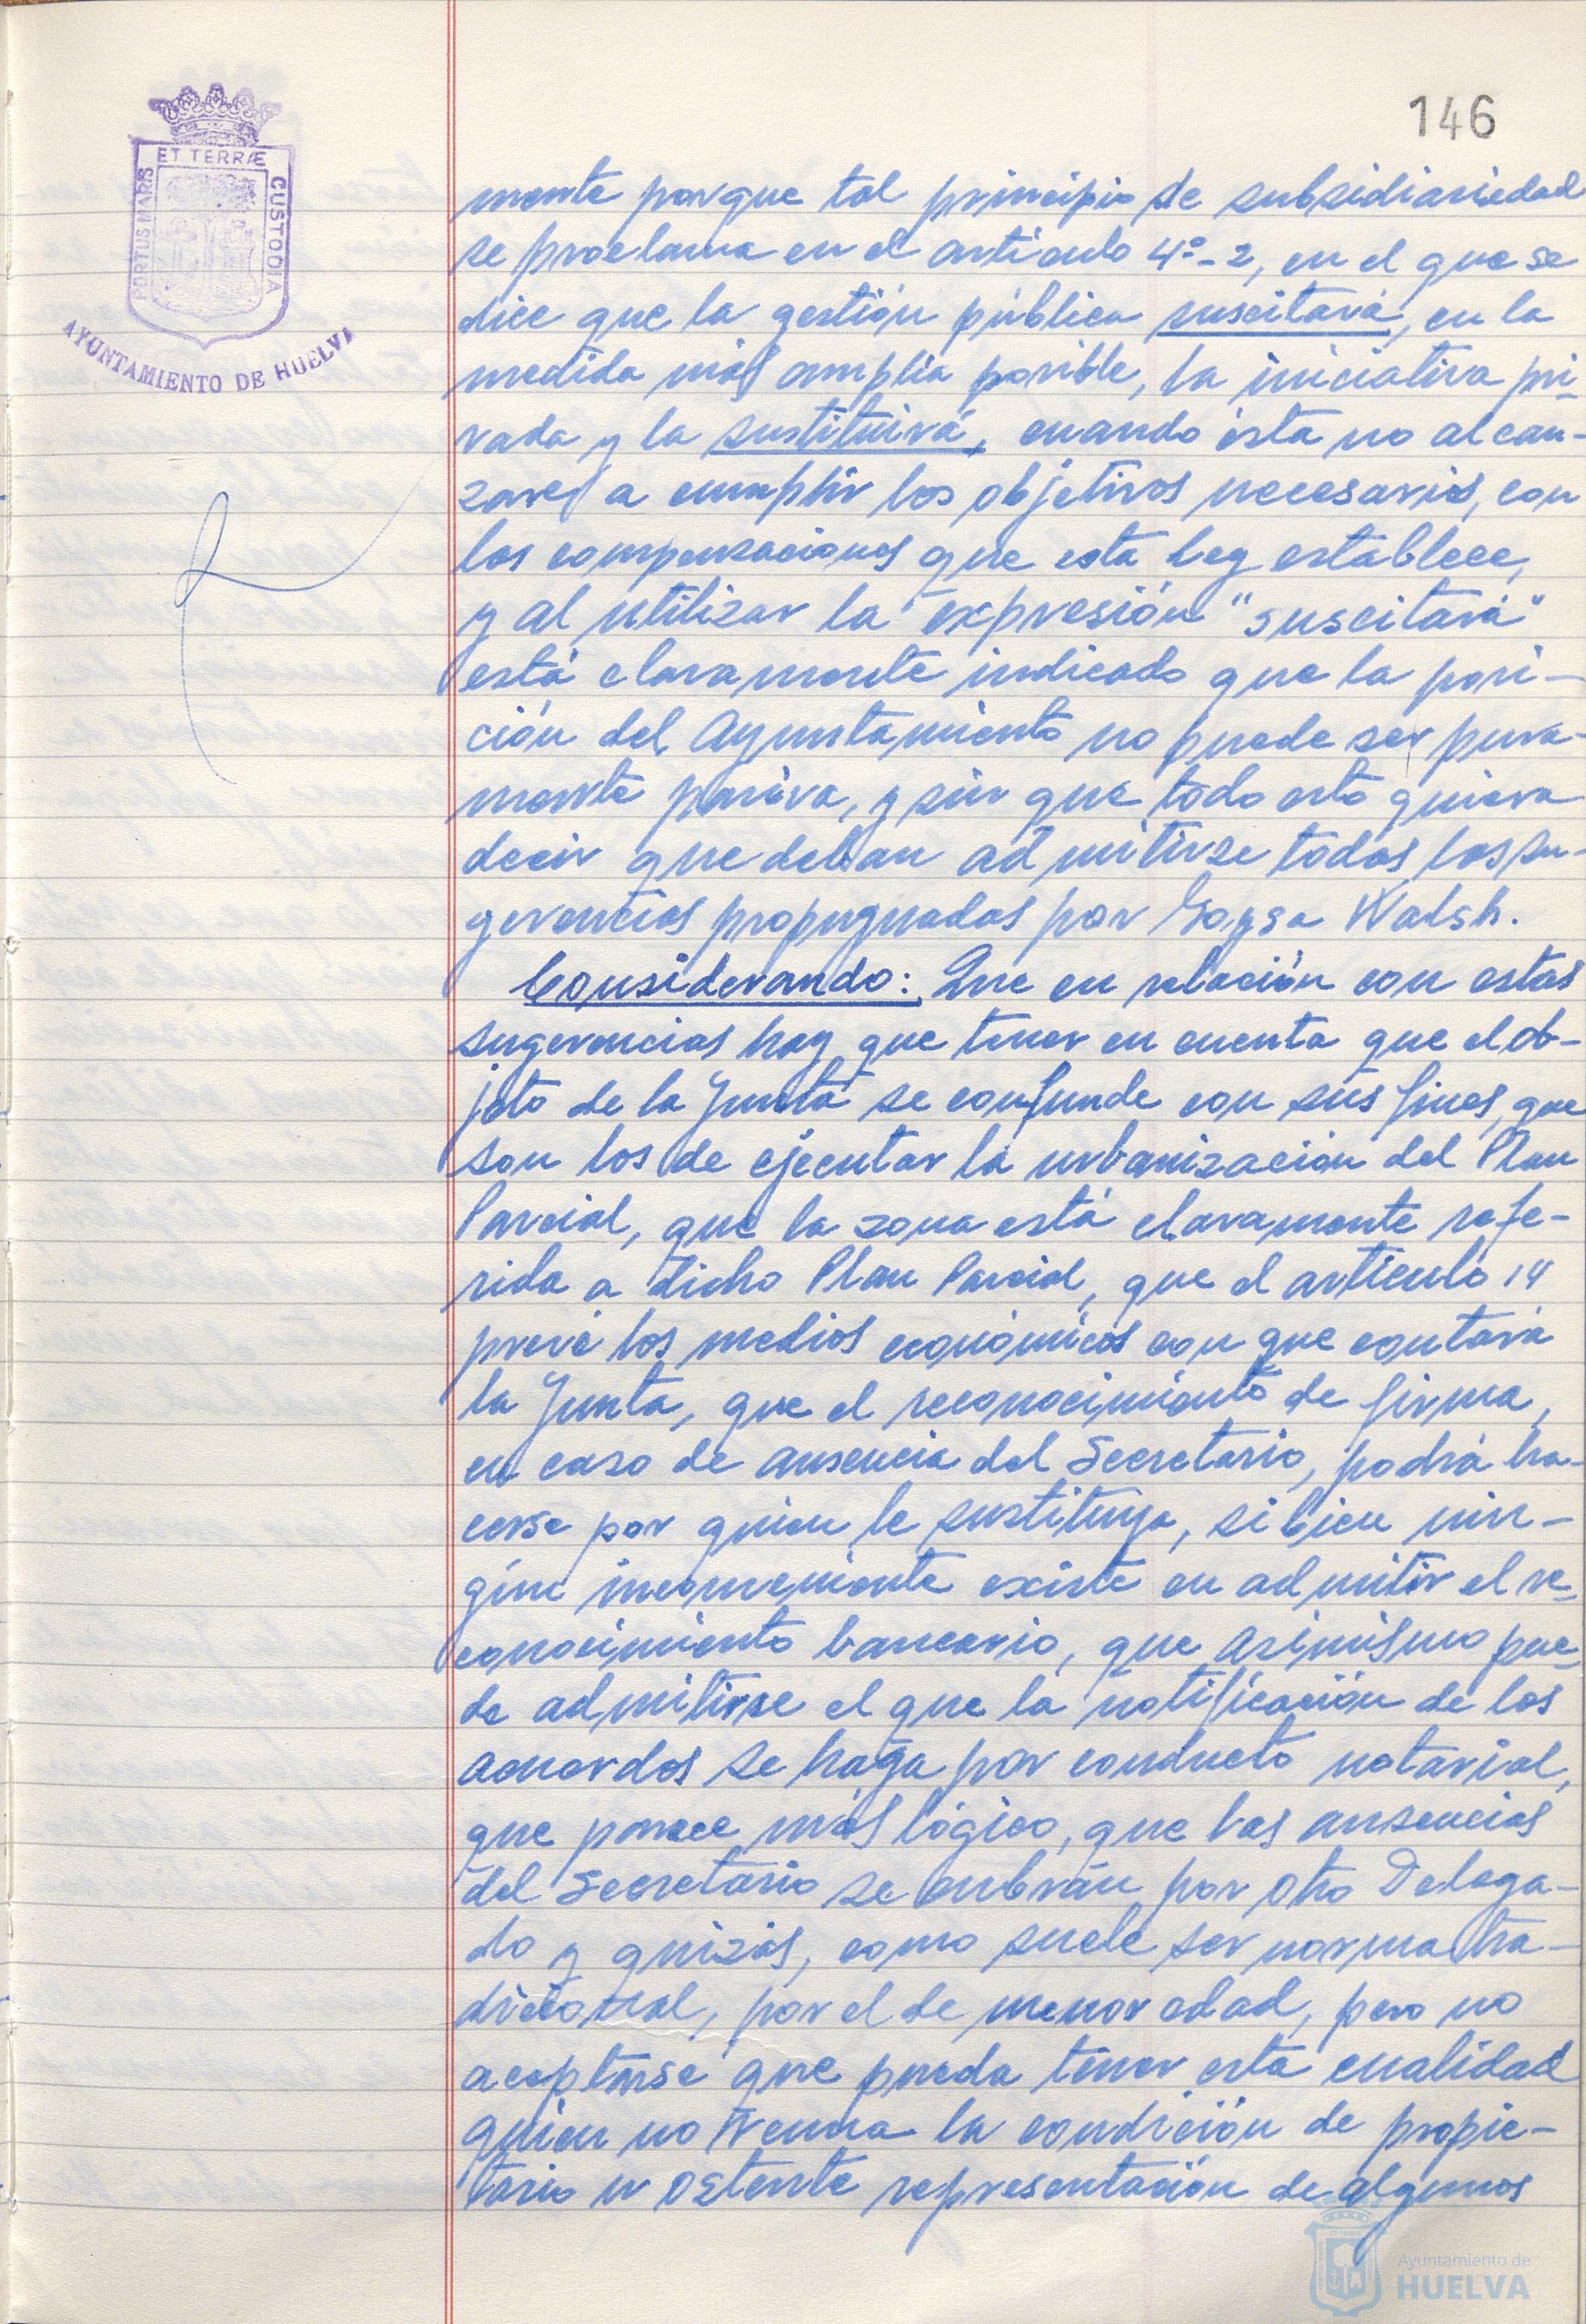 146
ET TERRÆ
PORTUS MARIS
CUSTODIA
AYUNTAMIENTO DE HUELVA
mente porque tal principio de subsidiariedad
se proclama en el artículo 4º-2, en el que se
dice que la gestión pública suscitará, en la
medida más amplia posible, la iniciativa pri-
vada y la sustituirá, cuando ésta no alcan-
zare a cumplir los objetivos necesarios, con
las compensaciones que esta Ley establece,
y al utilizar la expresión "suscitará"
está claramente indicado que la posi-
ción del Ayuntamiento no puede ser pura-
mente pasiva, y sin que todo esto quiera
decir que deban admitirse todas las su-
gerencias propugnadas por Goysa Walsh.
Considerando: Que en relación con estas
sugerencias hay que tener en cuenta que el ob-
jeto de la Junta se confunde con sus fines, que
son los de ejecutar la urbanización del Plan
Parcial, que la zona está claramente refe-
rida a dicho Plan Parcial, que el artículo 14
prevé los medios económicos con que contará
la Junta, que el reconocimiento de firma,
en caso de ausencia del Secretario, podrá ha-
cerse por quien le sustituya, si bien nin-
gún inconveniente existe en admitir el re-
conocimiento bancario, que asimismo pue-
de admitirse el que la notificación de los
acuerdos se haga por conducto notarial,
que parece más lógico, que las ausencias
del Secretario se cubrán por otro Delega-
do y quizás, como suele ser norma tra-
dicional, por el de menor edad, pero no
aceptarse que pueda tener esta cualidad
quien no reuna la condición de propie-
tario u ostente representación de algunos
Ayuntamiento de
HUELVA